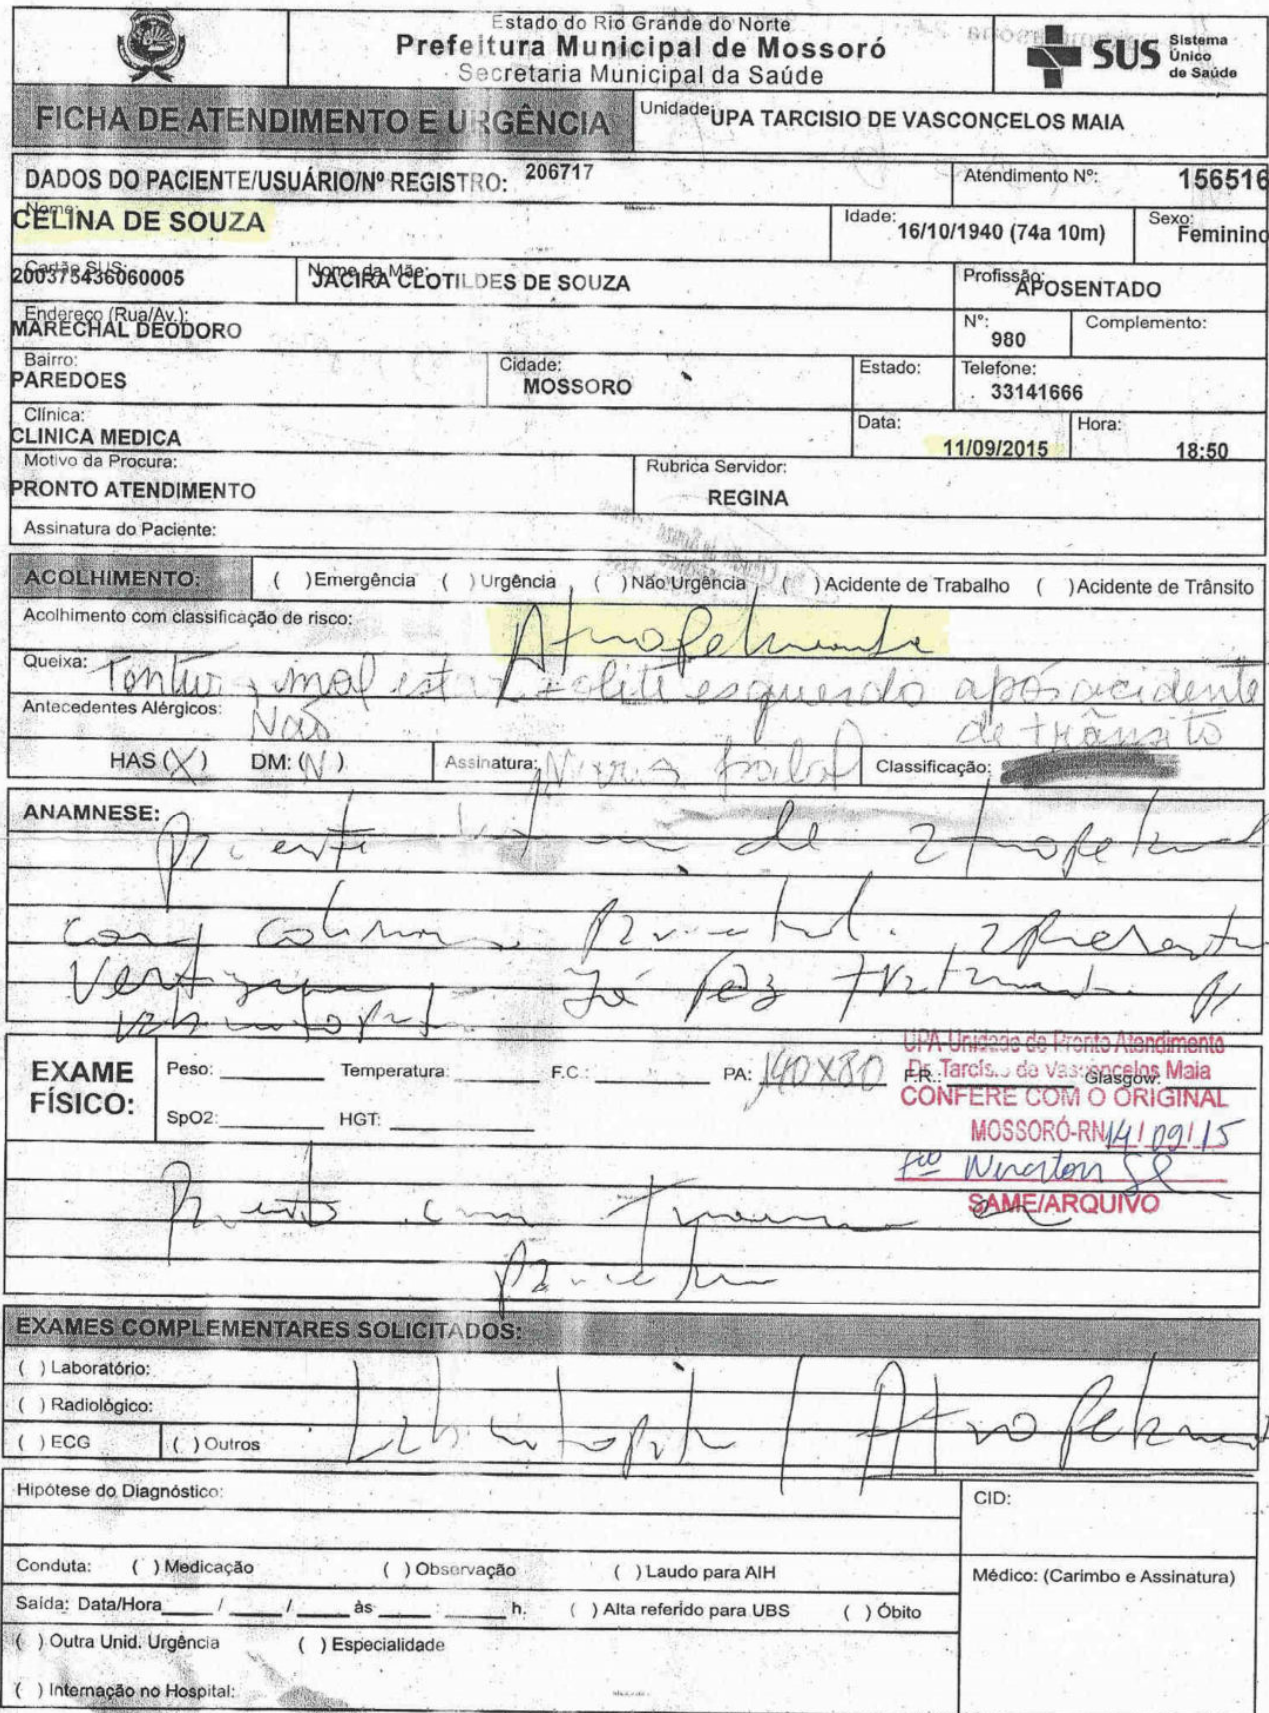 Estado do Rio Grande do Norte
Prefeitura Municipal de Mossoró
Secretaria Municipal da Saúde
SUS Sistema
Único
de Saúde
FICHA DE ATENDIMENTO E URGÊNCIA
Unidade: UPA TARCISIO DE VASCONCELOS MAIA
DADOS DO PACIENTE/USUÁRIO/Nº REGISTRO: 206717
Atendimento Nº: 156516
Nome: CELINA DE SOUZA
Idade: 16/10/1940 (74a 10m)
Sexo: Feminino
Cartão SUS: 200375436060005
Nome da Mãe: JACIRA CLOTILDES DE SOUZA
Profissão: APOSENTADO
Endereço (Rua/Av.): MARECHAL DEODORO
Nº: 980
Complemento:
Bairro: PAREDOES
Cidade: MOSSORO
Estado:
Telefone: 33141666
Clínica: CLINICA MEDICA
Data: 11/09/2015
Hora: 18:50
Motivo da Procura: PRONTO ATENDIMENTO
Rubrica Servidor: REGINA
Assinatura do Paciente:
ACOLHIMENTO: ( )Emergência ( )Urgência ( )Não Urgência ( )Acidente de Trabalho ( )Acidente de Trânsito
Acolhimento com classificação de risco: Atropelamento
Queixa: Tontura, mal estar esquerdo após acidente
de trânsito
Antecedentes Alérgicos: Não
HAS (X) DM: (N) Assinatura: Classificação:
ANAMNESE:
paciente vítima de atropelamento
com apresenta
vertigem Já fez tratamento p/
labirintopatia
EXAME FÍSICO:
Peso: Temperatura: F.C.: PA: 140X80 F.R.: Glasgow:
SpO2: HGT:
UPA Unidade de Pronto Atendimento
Dr. Tarcísio de Vasconcelos Maia
CONFERE COM O ORIGINAL
MOSSORÓ-RN 14/09/15
SAME/ARQUIVO
com trauma em
EXAMES COMPLEMENTARES SOLICITADOS:
( ) Laboratório:
( ) Radiológico:
( ) ECG ( ) Outros
Labirintopatia / Atropelamento
Hipótese do Diagnóstico:
CID:
Conduta: ( ) Medicação ( ) Observação ( ) Laudo para AIH
Médico: (Carimbo e Assinatura)
Saída: Data/Hora____/____/____ às ____:____h. ( ) Alta referido para UBS ( ) Óbito
( ) Outra Unid. Urgência ( ) Especialidade
( ) Internação no Hospital: